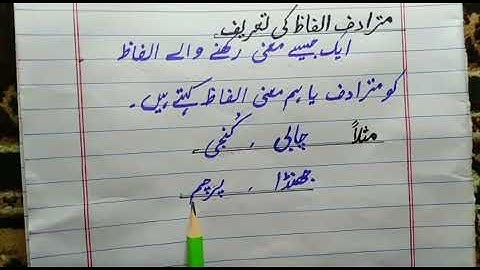 مترادف الفاظ کی تعریف
ایک جیسے معنی رکھنے والے الفاظ
کو مترادف یا ہم معنی الفاظ کہتے ہیں۔
مثلاً چابی ، کُنجی
جھنڈا ، پرچم